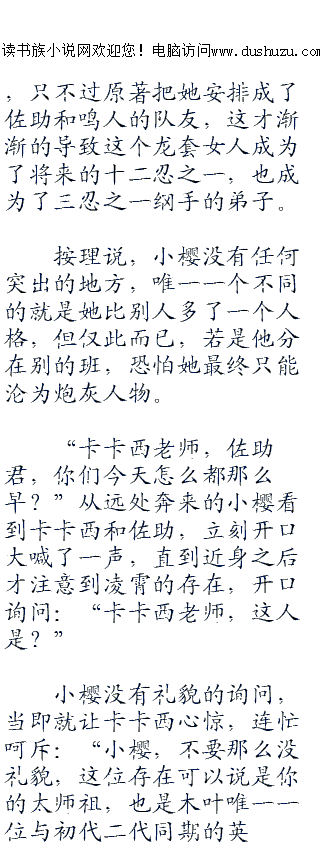 读书族小说网欢迎您！电脑访问www.dushuzu.com
，只不过原著把她安排成了
佐助和鸣人的队友，这才渐
渐的导致这个龙套女人成为
了将来的十二忍之一，也成
为了三忍之一纲手的弟子。
按理说，小樱没有任何
突出的地方，唯一一个不同
的就是她比别人多了一个人
格，但仅此而已，若是他分
在别的班，恐怕她最终只能
沦为炮灰人物。
“卡卡西老师，佐助
君，你们今天怎么都那么
早？”从远处奔来的小樱看
到卡卡西和佐助，立刻开口
大喊了一声，直到近身之后
才注意到凌霄的存在，开口
询问：“卡卡西老师，这人
是？”
小樱没有礼貌的询问，
当即就让卡卡西心惊，连忙
呵斥：“小樱，不要那么没
礼貌，这位存在可以说是你
的太师祖，也是木叶唯一一
位与初代二代同期的英